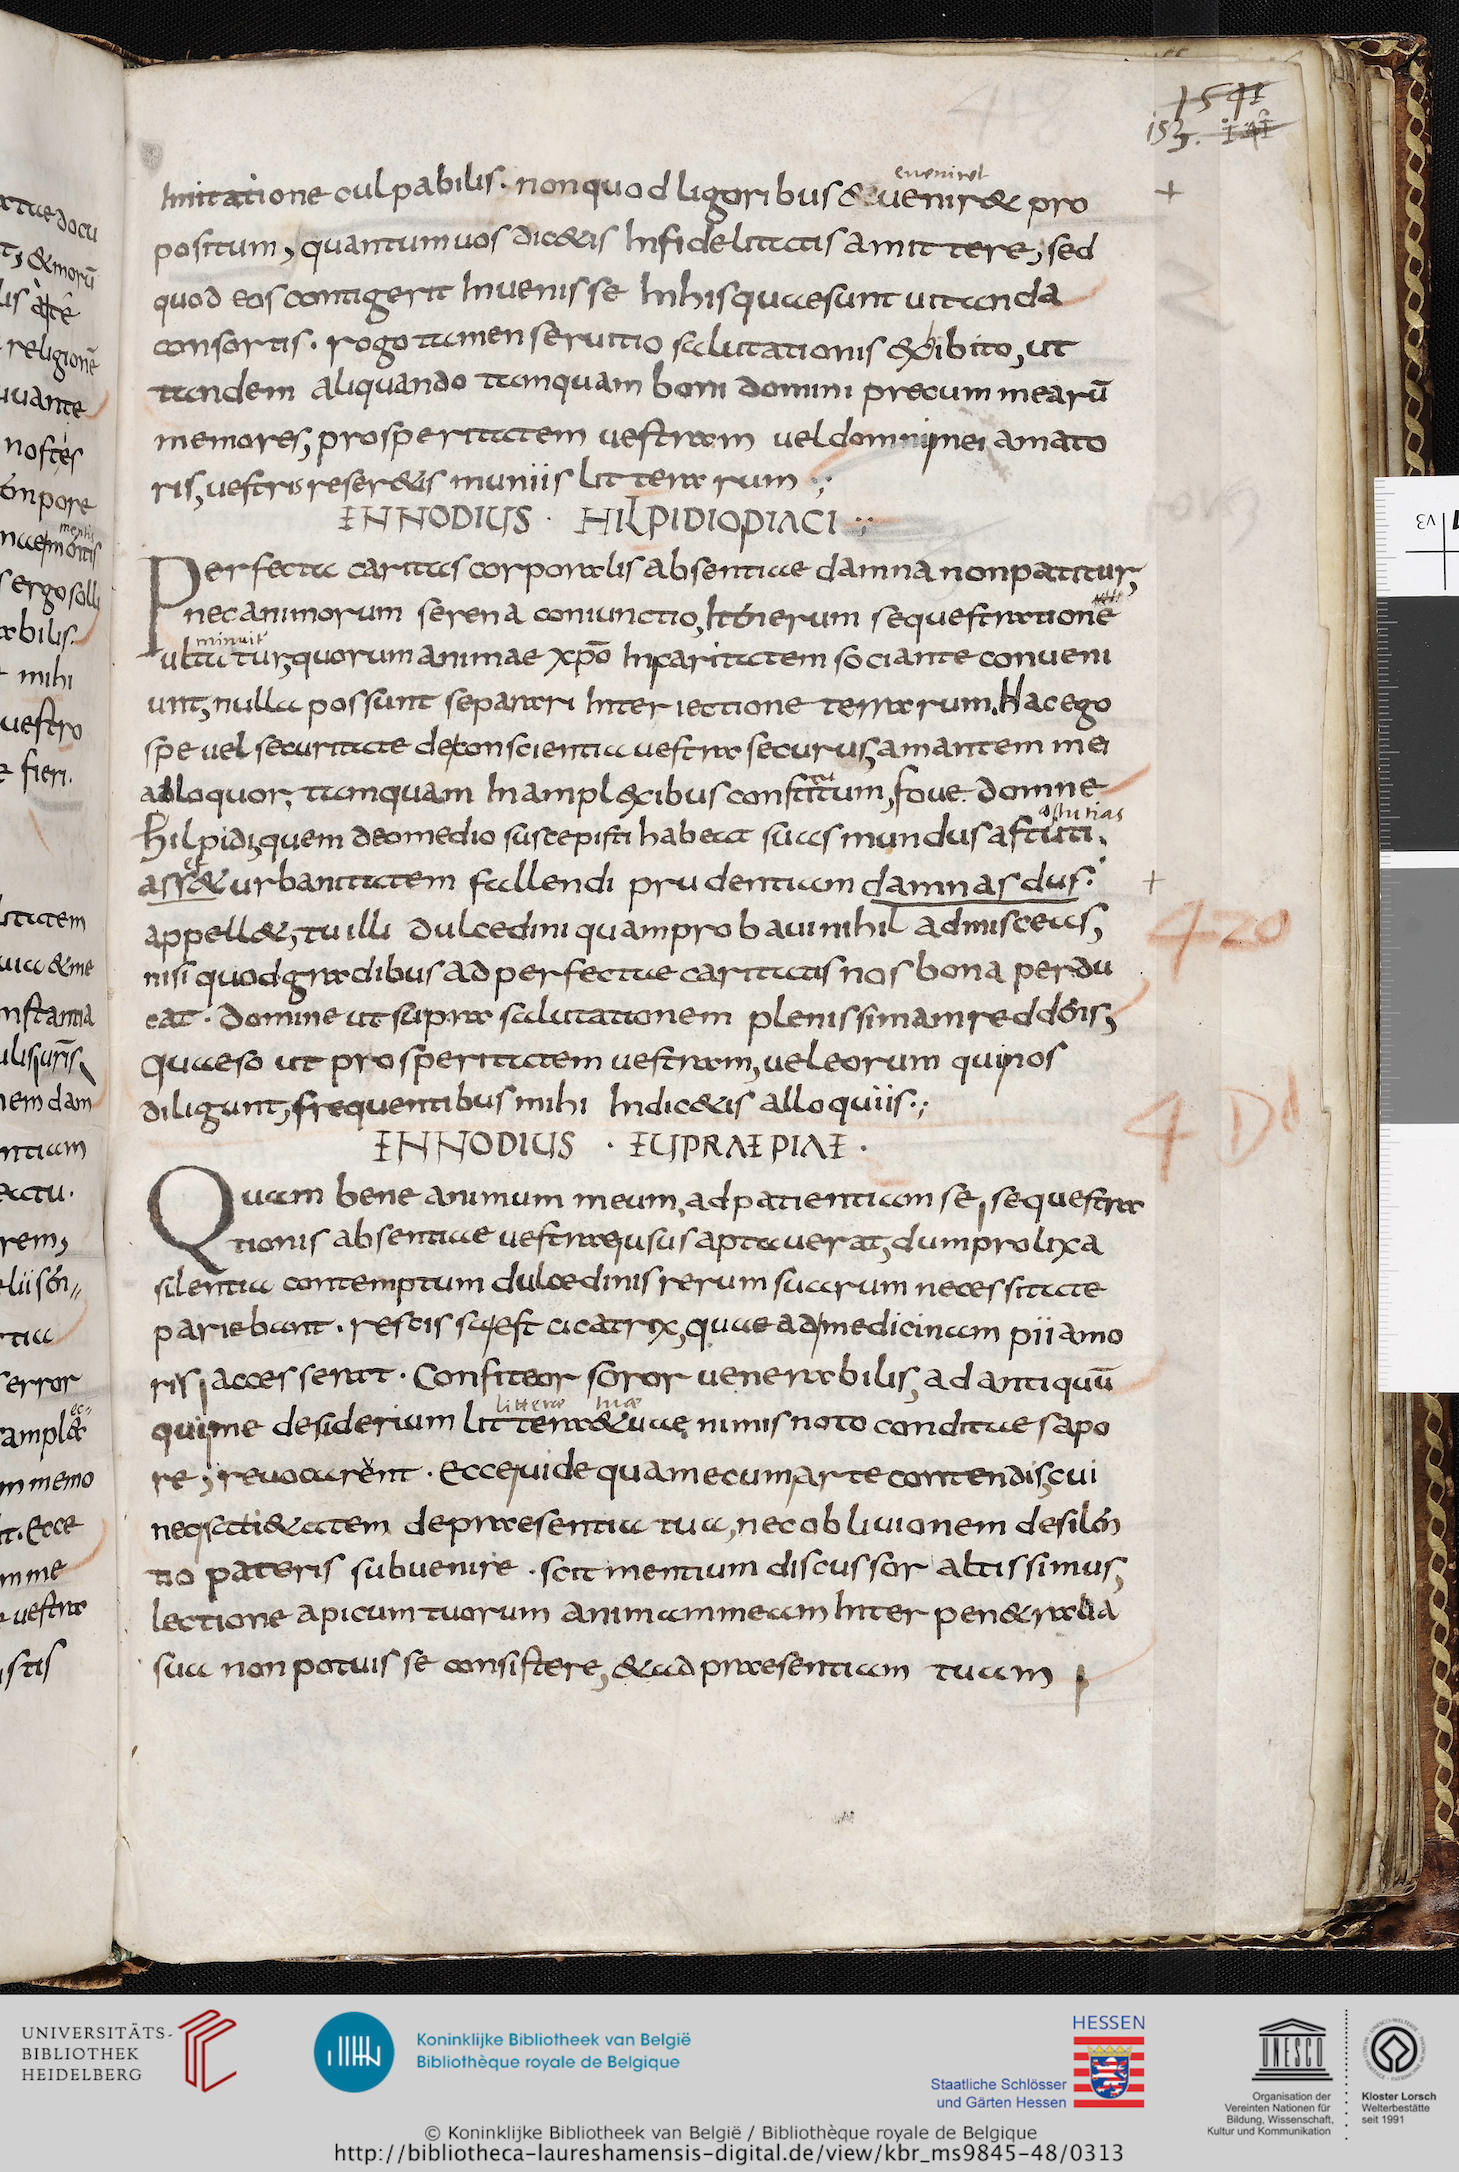 1541
153. 141
eveniret
Imitatione culpabilis. non quod ligoribus & uenir& pro
positum, quantum uos dic&is Infidelitatis amittere, sed
quod eos contigerit Inuenisse Inhis quae sunt uitanda
consortis. rogo tamen seruitio salutationis exhibito, ut
tandem aliquando tamquam boni domini precum mearū
memores, prosperitatem uestram uel domni mei amato
ris, uestris reser&is muniis litterarum
ENNODIUS · HILPIDIO DIACI
Perfecta caritas corporalis absentiae damna non patitur,
nec animorum serena coniunctio, Itinerum sequestratione
minuit
ultatur, quorum animae xp̄o Incaritatem sociante conueni
unt, nulla possunt separari Interiectione terrarum. Hac ego
spe uel securitate de conscientia uestra securus, amantem mei
adloquor, tamquam Inamplexibus constitutum, foue domne
astutias
Hilpidi, quem deo medio suscepisti habeat suas mundus astuti
et
ass & urbanitatem fallendi prudentiam damnas dus.
appell&, tu illi dulcedini quam probaui nihil admisceas,
nisi quod gradibus ad perfectae caritatis nos bona perdu
cat. Domine ut supra salutationem plenissimam reddens,
quaeso ut prosperitatem uestram, uel eorum qui nos
diligunt, frequentibus mihi Indic&is alloquiis.
420
ENNODIUS · EUPRAEPIAE ·
4 Dd
Quam bene animum meum, ad patientiam se, sequestra
tionis absentiae uestrae usus aptauerat, dum prolixa
silentia contemptum dulcedinis rerum suarum necessitate
pariebant. rescissa est cicatrix, quae ad medicinam pii amo
ris accesserat. Confiteor soror uenerabilis, ad antiquū
litterae tuae
qui me desiderium litterae &uae nimis noto conditae sapo
re, reuocarent. Ecce uide qua mecum arte contendis, cui
neq; sati&atem de praesentia tua, nec obliuionem de silen
tio pateris subuenire. scit mentium discussor altissimus,
lectione apicum tuorum animam meam Inter pen&ralia
sua non potuisse consistere, & ad praesentiam tuam
UNIVERSITÄTS-
BIBLIOTHEK
HEIDELBERG
Koninklijke Bibliotheek van België
Bibliothèque royale de Belgique
HESSEN
Staatliche Schlösser
und Gärten Hessen
UNESCO
Organisation der
Vereinten Nationen für
Bildung, Wissenschaft,
Kultur und Kommunikation
Kloster Lorsch
Welterbestätte
seit 1991
© Koninklijke Bibliotheek van België / Bibliothèque royale de Belgique
http://bibliotheca-laureshamensis-digital.de/view/kbr_ms9845-48/0313